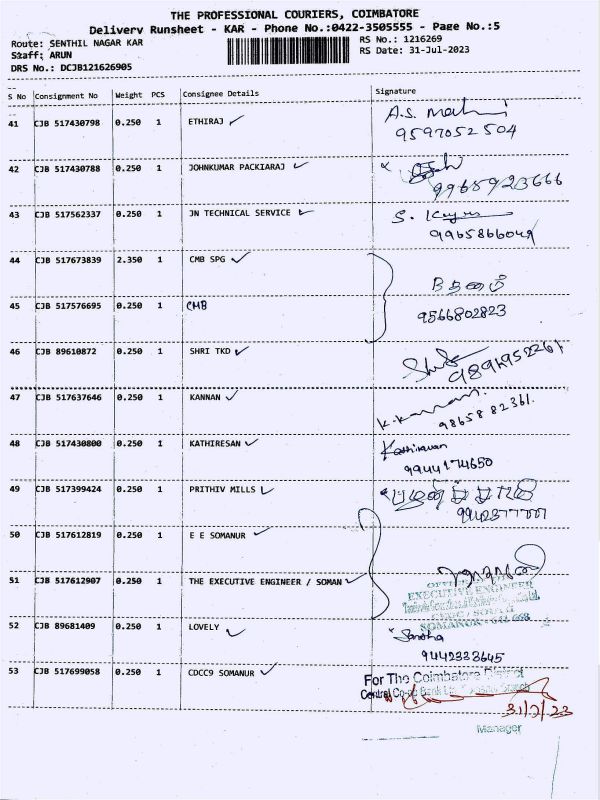 THE PROFESSIONAL COURIERS, COIMBATORE
Delivery Runsheet - KAR - Phone No.:0422-3505555 - Page No.:5
Route: SENTHIL NAGAR KAR
RS No.: 1216269
Staff: ARUN
RS Date: 31-Jul-2023
DRS No.: DCJB121626905
S No Consignment No Weight PCS Consignee Details Signature
41 CJB 517430798 0.250 1 ETHIRAJ
9597052504
42 CJB 517430788 0.250 1 JOHNKUMAR PACKIARAJ
9965923666
43 CJB 517562337 0.250 1 JN TECHNICAL SERVICE
9965866049
44 CJB 517673839 2.350 1 CMB SPG
45 CJB 517576695 0.250 1 CMB
9566802823
46 CJB 89610872 0.250 1 SHRI TKD
47 CJB 517637646 0.250 1 KANNAN
9865882361.
48 CJB 517430800 0.250 1 KATHIRESAN
Kathiravan
9944174650
49 CJB 517399424 0.250 1 PRITHIV MILLS
50 CJB 517612819 0.250 1 E E SOMANUR
51 CJB 517612907 0.250 1 THE EXECUTIVE ENGINEER / SOMAN
EXECUTIVE ENGINEER
52 CJB 89681409 0.250 1 LOVELY
9442333645
53 CJB 517699058 0.250 1 CDCC9 SOMANUR
For The Coimbatore District
Manager